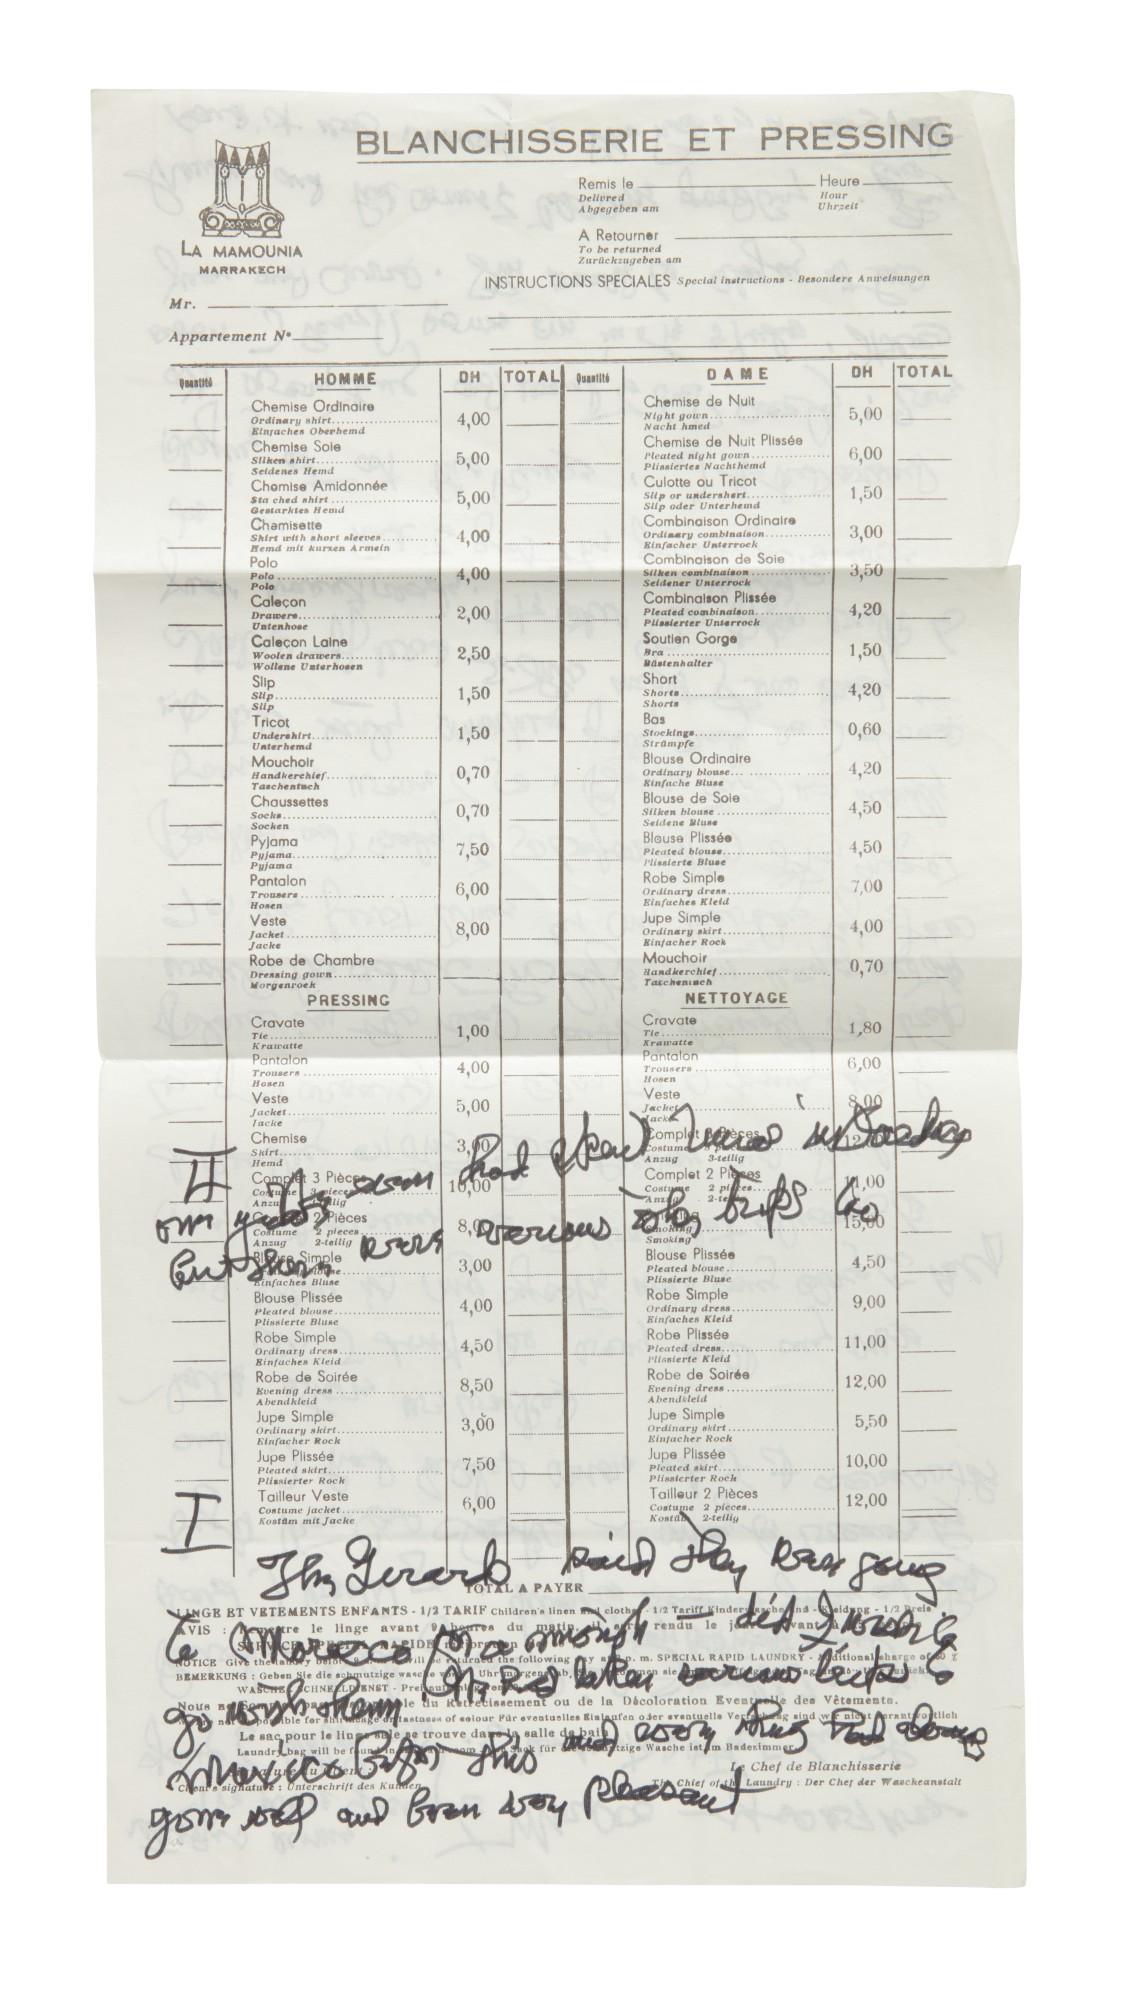 BLANCHISSERIE ET PRESSING
LA MAMOUNIA
MARRAKECH
Remis le Heure
Delivred Hour
Abgegeben am Uhrzeit
A Retourner
To be returned
Zurückzugeben am
INSTRUCTIONS SPECIALES Special instructions - Besondere Anweisungen
Mr.
Appartement N°
Quantité HOMME DH TOTAL Quantité DAME DH TOTAL
Chemise Ordinaire
Ordinary shirt 4,00
Einfaches Oberhemd
Chemise Soie
Silken shirt 5,00
Seidenes Hemd
Chemise Amidonnée
Sta ched shirt 5,00
Gestarktes Hemd
Chemisette
Shirt with short sleeves 4,00
Hemd mit kurzen Armeln
Polo
Polo 4,00
Polo
Caleçon
Drawers 2,00
Untenhose
Caleçon Laine
Woolen drawers 2,50
Wollene Unterhosen
Slip
Slip 1,50
Slip
Tricot
Undershirt 1,50
Unterhemd
Mouchoir
Handkerchief 0,70
Taschentuch
Chaussettes
Socks 0,70
Socken
Pyjama
Pyjama 7,50
Pyjama
Pantalon
Trousers 6,00
Hosen
Veste
Jacket 8,00
Jacke
Robe de Chambre
Dressing gown
Morgenrock
PRESSING
Cravate
Tie 1,00
Krawatte
Pantalon
Trousers 4,00
Hosen
Veste
Jacket 5,00
Jacke
Chemise
Skirt 3,00
Hemd
Complet 3 Pièces
Costume 3 pieces 10,00
Anzug
2 Pièces
Costume 2 pieces 8,00
Anzug 2-teilig
Blouse Simple
3,00
Einfaches Bluse
Blouse Plissée
Pleated blouse 4,00
Plissierte Bluse
Robe Simple
Ordinary dress 4,50
Einfaches Kleid
Robe de Soirée
Evening dress 8,50
Abendkleid
Jupe Simple
Ordinary skirt 3,00
Einfacher Rock
Jupe Plissée
Pleated skirt 7,50
Plissierter Rock
Tailleur Veste
Costume jacket 6,00
Kostüm mit Jacke
Chemise de Nuit
Night gown 5,00
Nacht hmed
Chemise de Nuit Plissée
Pleated night gown 6,00
Plissiertes Nachthemd
Culotte ou Tricot
Slip or undershert 1,50
Slip oder Unterhemd
Combinaison Ordinaire
Ordinary combinaison 3,00
Einfacher Unterrock
Combinaison de Soie
Silken combinaison 3,50
Seidener Unterrock
Combinaison Plissée
Pleated combinaison 4,20
Plissierter Unterrock
Soutien Gorge
Bra 1,50
Büstenhalter
Short
Shorts 4,20
Shorts
Bas
Stockings 0,60
Strümpfe
Blouse Ordinaire
Ordinary blouse 4,20
Einfache Bluse
Blouse de Soie
Silken blouse 4,50
Seidene Bluse
Blouse Plissée
Pleated blouse 4,50
Plissierte Bluse
Robe Simple
Ordinary dress 7,00
Einfaches Kleid
Jupe Simple
Ordinary skirt 4,00
Einfacher Rock
Mouchoir
Handkerchief 0,70
Taschentuch
NETTOYAGE
Cravate
Tie 1,80
Krawatte
Pantalon
Trousers 6,00
Hosen
Veste
Jacket 8,00
Jacke
Complet 3 Pièces
Costume
Anzug 3-teilig
Complet 2 Pièces
Costume 2 pieces
Anzug
Smoking 15,00
Smoking
Blouse Plissée
Pleated blouse 4,50
Plissierte Bluse
Robe Simple
Ordinary dress 9,00
Einfaches Kleid
Robe Plissée
Pleated dress 11,00
Plissierte Kleid
Robe de Soirée
Evening dress 12,00
Abendkleid
Jupe Simple
Ordinary skirt 5,50
Einfacher Rock
Jupe Plissée
Pleated skirt 10,00
Plissierter Rock
Tailleur 2 Pièces
Costume 2 pieces 12,00
Kostüm 2-teilig
II
had
on yachts even
but there were various other trips to
I
Then Gerard said they were going
TOTAL A PAYER
LINGE ET VETEMENTS ENFANTS - 1/2 TARIF Children's linen and clothes - 1/2 Tariff
to Morocco for a month — did I want to
go with them
Mexico before this and every thing had always
gone well and been very pleasant
Nous ne Sommes pas du Retrecissement ou de la Décoloration Eventuelle des Vêtements.
Le sac pour le linge sale se trouve dans la salle de bain
Le Chef de Blanchisserie
Client's signature : Unterschrift des Kunden
The Chief of the Laundry : Der Chef der Wascheanstalt